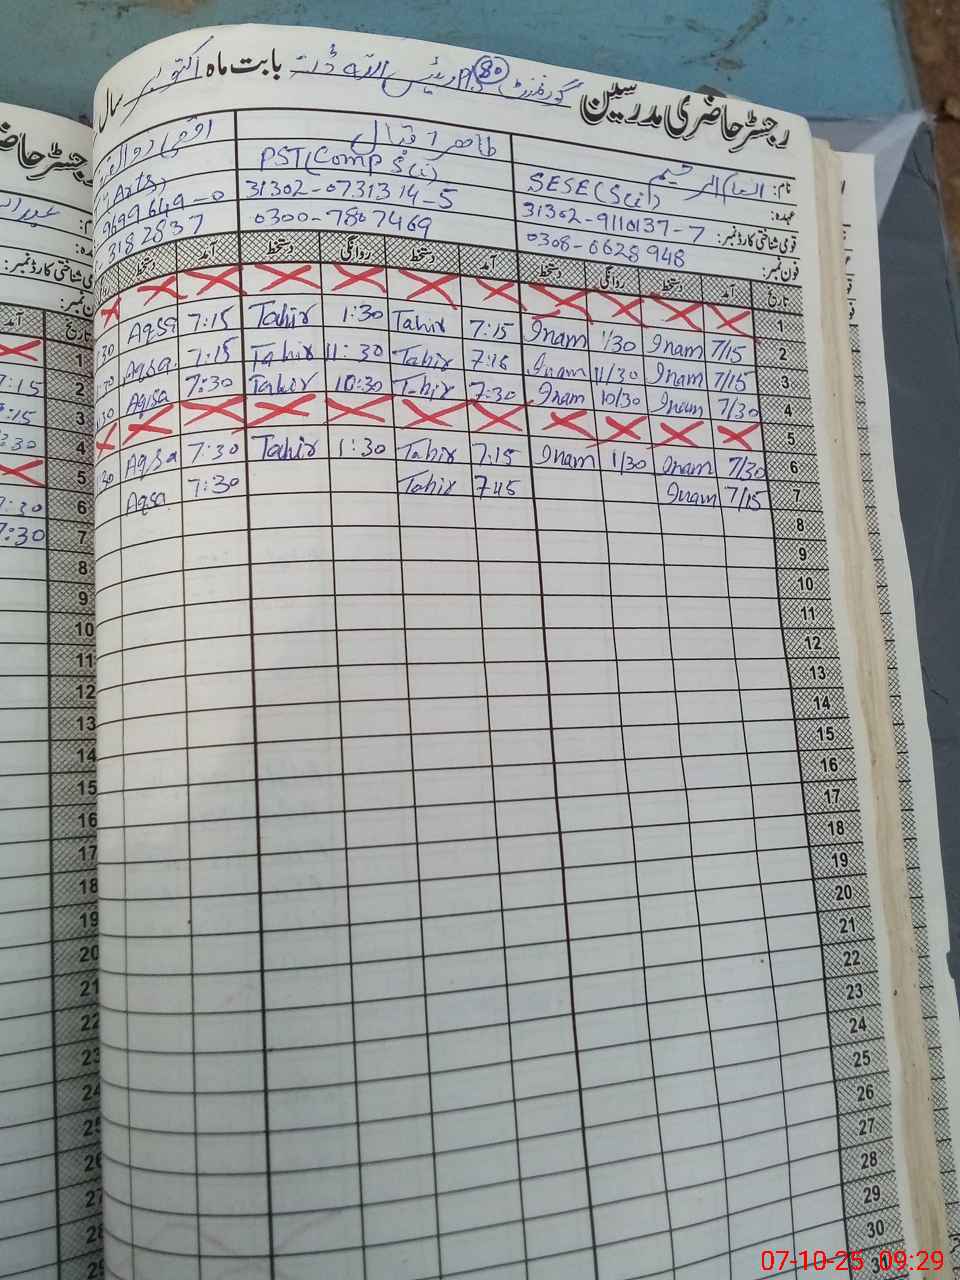 رجسٹر حاضری مدرسین گورنمنٹ P/S 80 بابت ماہ اکتوبر سال
نام: انعام الرحیم
طاہر اقبال
اقصیٰ ذوالفقار
عہدہ: SESE (Sci)
PST (Comp Sci)
(Arts)
قومی شناختی کارڈ نمبر: 31302-9110137-7
31302-0731314-5
9699649-0
فون نمبر: 0308-6628948
0300-7807469
3182837
تاریخ آمد دستخط روانگی دستخط آمد دستخط روانگی دستخط آمد دستخط
1
2 7/15 Inam 1/30 Inam 7:15 Tahir 1:30 Tahir 7:15 Aqsa
3 7/15 Inam 11/30 Inam 7:16 Tahir 11:30 Tahir 7:15 Aqsa
4 7/30 Inam 10/30 Inam 7:30 Tahir 10:30 Tahir 7:30 Aqsa
5
6 7/30 Inam 1/30 Inam 7:15 Tahir 1:30 Tahir 7:30 Aqsa
7 7/15 Inam 7:15 Tahir 7:30 Aqsa
8
9
10
11
12
13
14
15
16
17
18
19
20
21
22
23
24
25
26
27
28
29
30
31
رجسٹر حاضر
آمد تاریخ
1
7:15 2
7:15 3
7:30 4
5
7:30 6
7:30 7
8
9
10
11
12
13
14
15
16
17
18
19
20
21
22
23
24
25
26
27
28
29
07-10-25 09:29